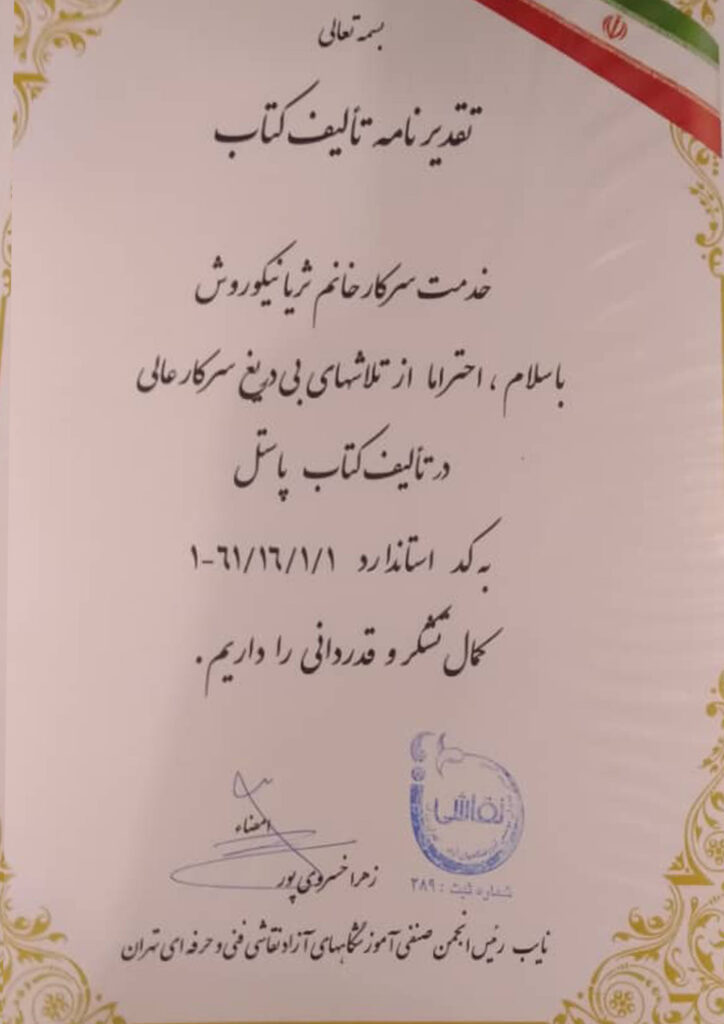 بسمه تعالی
تقدیرنامه تألیف کتاب
خدمت سرکار خانم ثریا نیکوروش
باسلام ، احتراما از تلاشهای بی دریغ سرکار عالی
در تألیف کتاب پاستل
به کد استاندارد ۱-۶۱/۱۶/۱/۱
کمال تشکر و قدردانی را داریم .
نقاشی
شماره ثبت : ۲۸۹
امضاء
زهرا خسروی پور
نایب رئیس انجمن صنفی آموزشگاههای آزاد نقاشی فنی و حرفه ای تهران